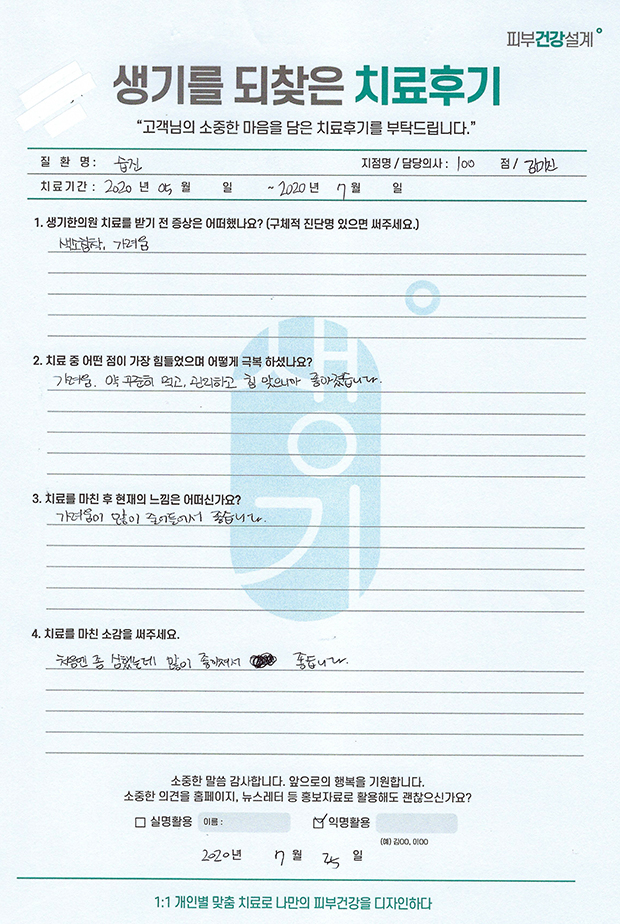 피부건강설계
생기를 되찾은 치료후기
“고객님의 소중한 마음을 담은 치료후기를 부탁드립니다.”
질 환 명 : 습진 지점명 / 담당의사 : 점 /
치료기간 : 2020 년 05 월 일 ~ 2020 년 7 월 일
1. 생기한의원 치료를 받기 전 증상은 어떠했나요? (구체적 진단명 있으면 써주세요.)
색소침착, 가려움
2. 치료 중 어떤 점이 가장 힘들었으며 어떻게 극복 하셨나요?
가려움. 약 꾸준히 먹고, 관리하고 침 맞으니까 좋아졌습니다.
3. 치료를 마친 후 현재의 느낌은 어떠신가요?
가려움이 많이 줄어들어서 좋습니다.
4. 치료를 마친 소감을 써주세요.
처음엔 좀 심했는데 많이 좋아져서 좋습니다.
생기
소중한 말씀 감사합니다. 앞으로의 행복을 기원합니다.
소중한 의견을 홈페이지, 뉴스레터 등 홍보자료로 활용해도 괜찮으신가요?
실명활용 이름 : 익명활용
(예) 김OO, 이OO
2020 년 7 월 25 일
1:1 개인별 맞춤 치료로 나만의 피부건강을 디자인하다